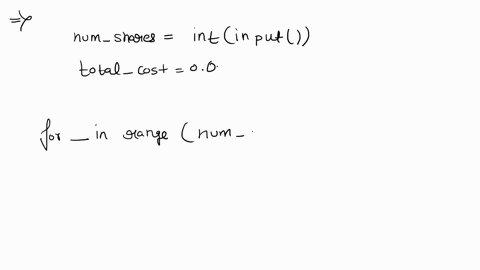 =>
num_shares = int(input())
total_cost = 0.0
for _ in range (num_